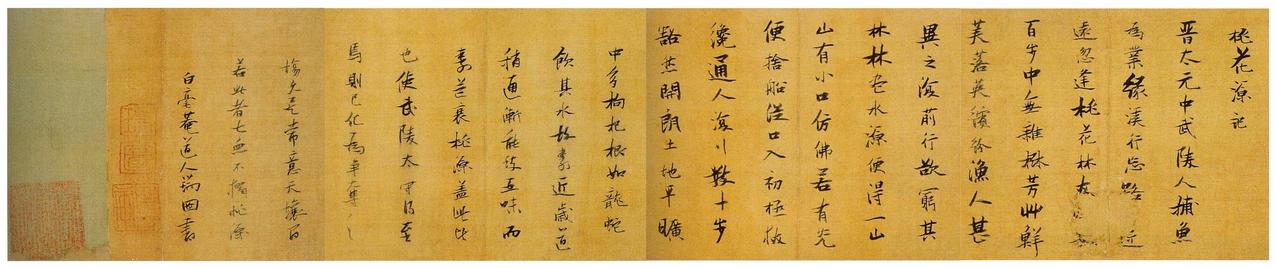 桃花源记
晋太元中武陵人捕魚
為業缘溪行忘路
近
遠忽逢桃花林夹
百步中無雜樹芳艸鮮
美落英缤紛漁人甚
異之復前行欲窮其
林林尽水源便得一山
山有小口仿佛若有光
便捨船從口入初極狹
纔通人復行數十步
豁然開朗土地平曠
中多枸杞根如龍蛇
飲其水故壽近歲道
稍通漸能致五味而
壽益衰桃源蓋此比
也使武陵太守得至
焉則已化為争奪之
場久矣常意天壤间
若此者甚衆不獨桃源
白毫菴道人瑞圖書